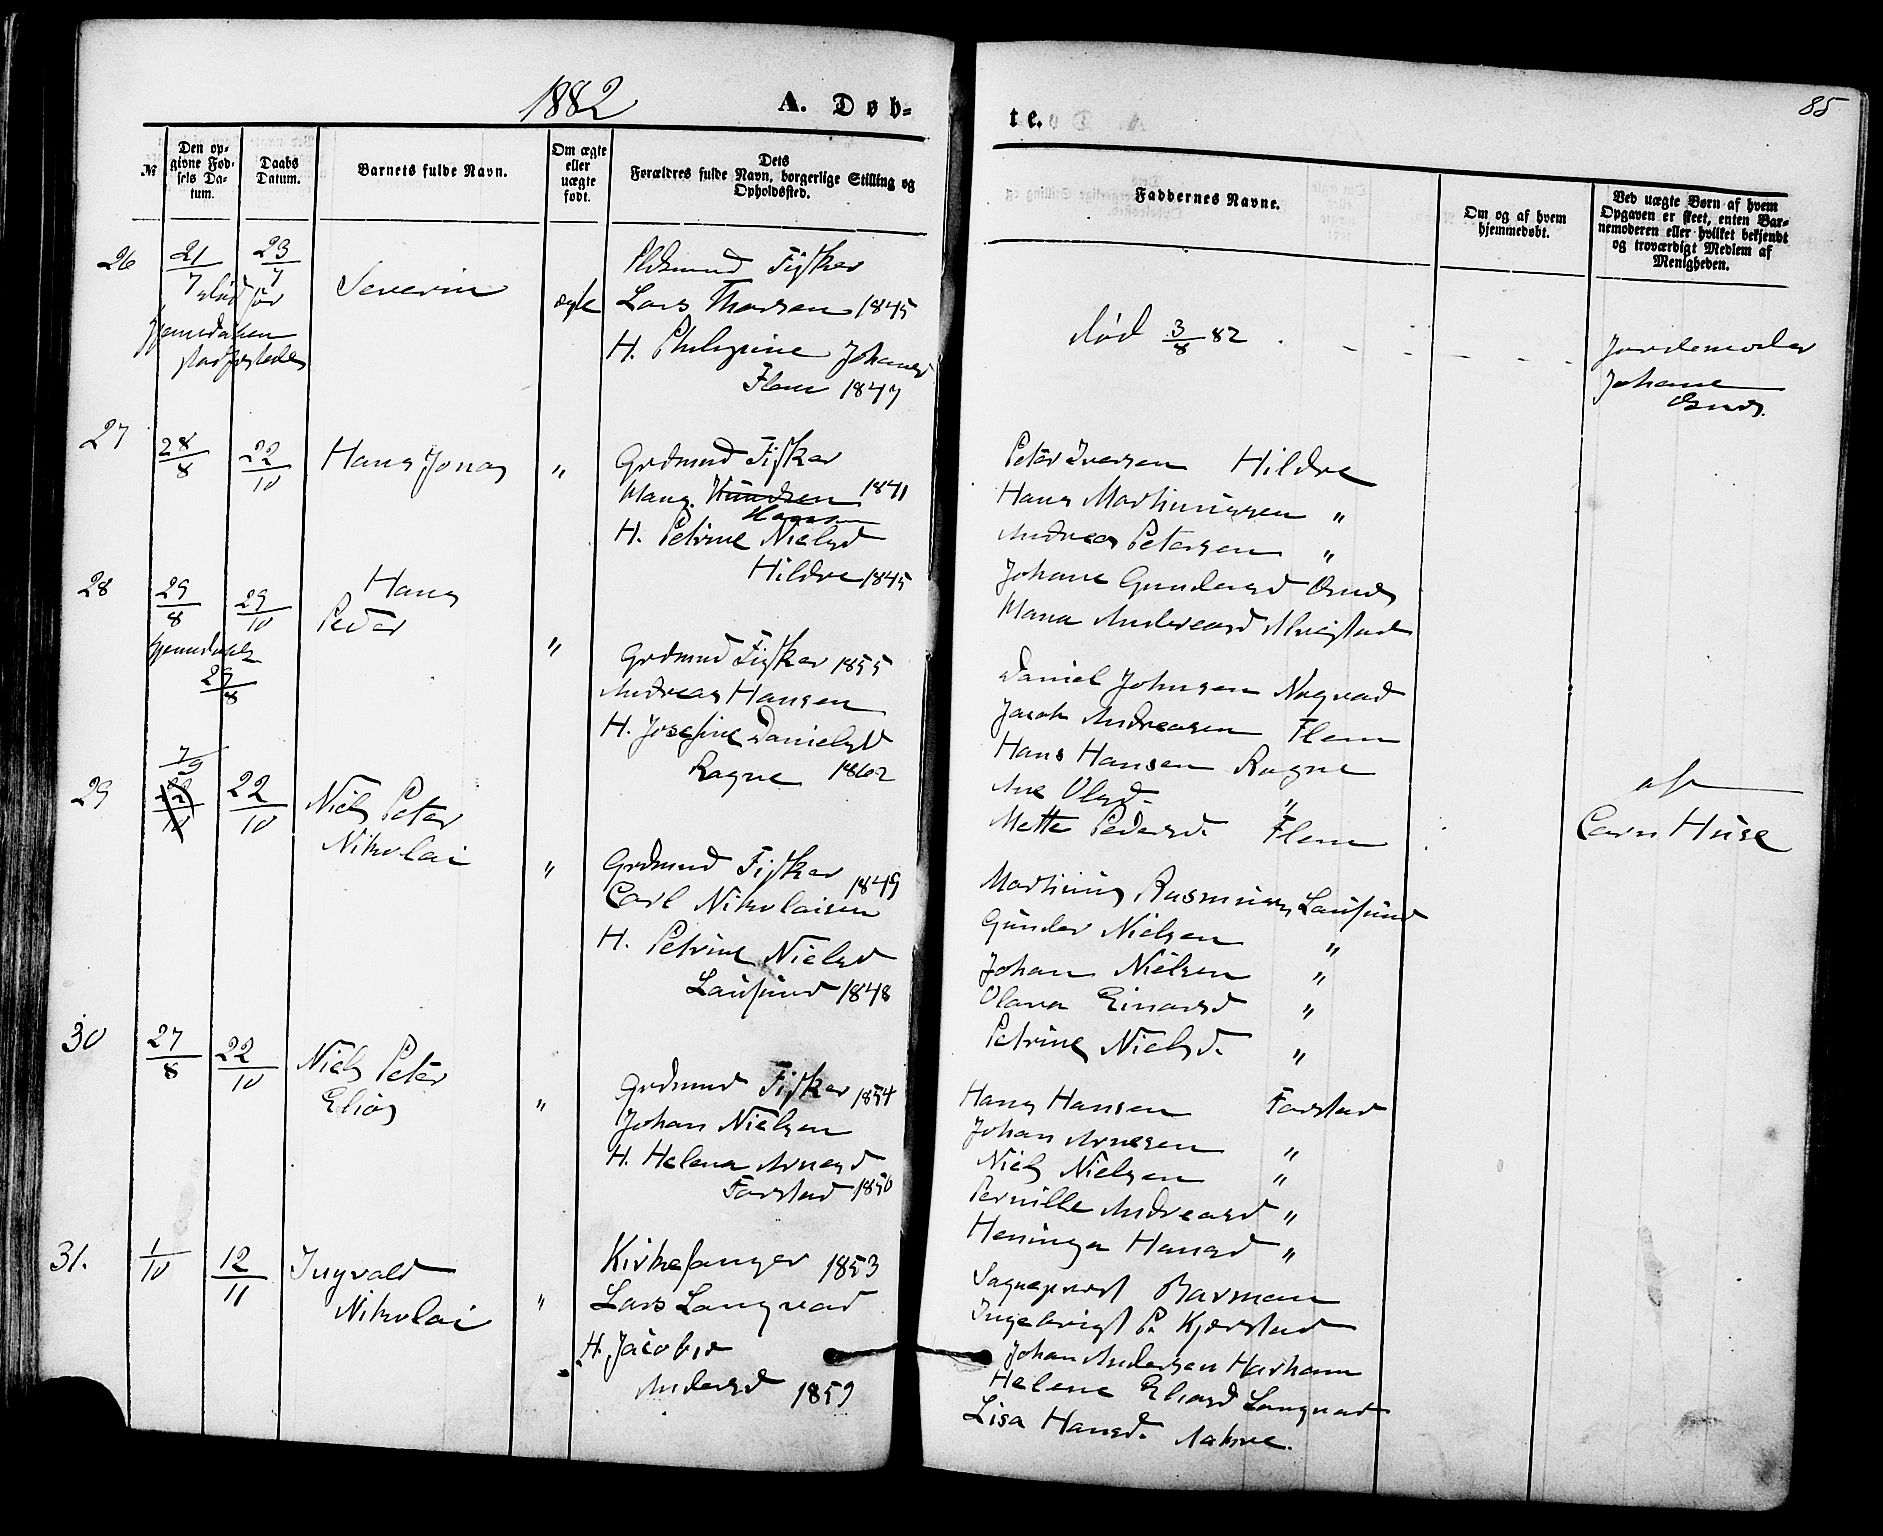 1882
A. Døb-
te.
85
№
Den op-
givne Fød-
sels Da-
tum.
Daabs
Datum.
Barnets fulde Navn.
Om ægte
eller
uægte
født.
Dets
Forældres fulde Navn, borgerlige Stilling og
Opholdssted.
Faddernes Navne.
Om og af hvem
hjemmedøbt.
Ved uægte Børn af hvem
Opgaven er skeet, enten Bar-
nemoderen eller hvilket bekjendt
og troværdigt Medlem af
Menigheden.
26
21/7
23/7
død før
hjemmedaaben
stadfæstedes
Severin
ægte
Fisker
Lars Thorsen 1845
H. Johansd
Flem 1847
død 3/8 82
Jordemoder
Johane
27
28/8
22/10
Hans Jonas
"
Grdmand Fisker
Mons. Knudsen 1841
Hansen
H. Petrine Nielsd
Hildre 1845
Peter Iversen Hildre
Hans Martinussen "
Andreas Petersen "
Johane Gundersd
Andreasd
28
29/8
29/10
hjemmedøbt
29/8
Hans
Peder
"
Grdmand Fisker 1855
Andreas Hansen
H. Josefine Danielsd
Rogne 1862
Daniel Johnsen Nogvad
Jacob Andreasen Flem
Hans Hansen Rogne
Ane Olsd. "
Mette Pedersd. Flem
af
Huse
29
7/9
22/10
Niels Peter
Nikolai
"
Grdmand Fisker
1849
Carl Nikolaisen
H. Petrine Nielsd
Lausund 1848
Martinus Rasmussen Lausund
Gunder Nielsen "
Johan Nielsen "
Olava Einarsd "
Petrine Nielsd. "
30
27/8
22/10
Niels Peter
Elias
"
Grdmand Fisker 1854
Johan Nielsen
H. Helena Arnesd
Farstad 1850
Hans Hansen Farstad
Johan Arnesen "
Niels Nielsen "
Pernille Andreasd "
Heninga Hansd "
31.
1/10
12/11
Ingvald
Nikolai
"
Kirkesanger 1853
Lars Longvad
H. Jacobia
Andersd 1859
Sognepræst Barman
Ingebrigt P. Kjerstad
Johan Andersen Harham
Helene Eliasd Longvad
Lisa Hansd.